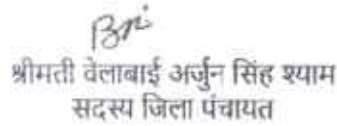 श्रीमती वेलाबाई अर्जुन सिंह श्याम
सदस्य जिला पंचायत